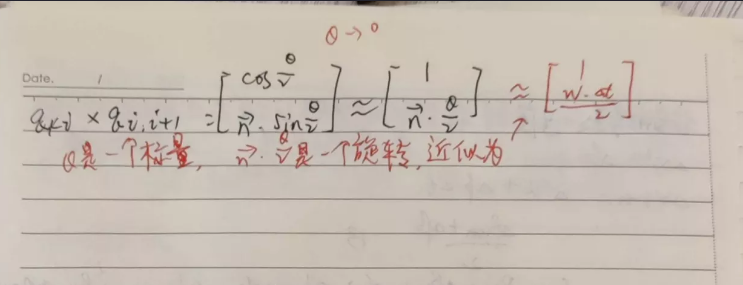 θ→0
Date. /
q_{ki} × q_{i,i+1} = [cos θ/2; n⃗·sin θ/2] ≈ [1; n⃗·θ/2] ≈ [1; w·Δt/2]
θ是一个标量, n⃗·θ/2是一个旋转,近似为